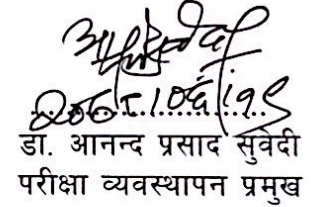 २०८१।०६।१९
डा. आनन्द प्रसाद सुवेदी
परीक्षा व्यवस्थापन प्रमुख